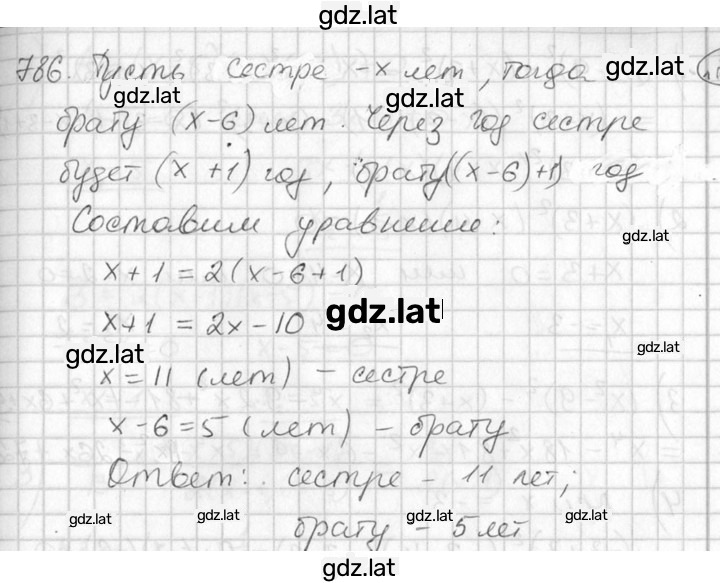 gdz.lat
786. Пусть сестре - x лет, тогда gdz.lat
gdz.lat gdz.lat
брату (x-6) лет. Через год сестре
будет (x+1) год, брату((x-6)+1) год
Составим уравнение:
gdz.lat
x+1=2(x-6+1)
x+1 = 2x-10 gdz.lat
gdz.lat gdz.lat
x=11 (лет) - сестре
x-6=5 (лет) - брату
Ответ: сестре - 11 лет;
gdz.lat gdz.lat gdz.lat gdz.lat
брату - 5 лет
gdz.lat